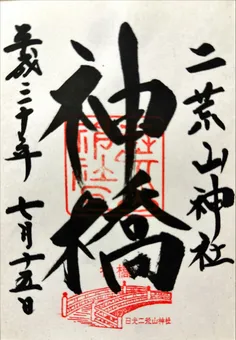 二荒山神社
神橋
平成二十年
七月十五日
神橋
日光二荒山神社